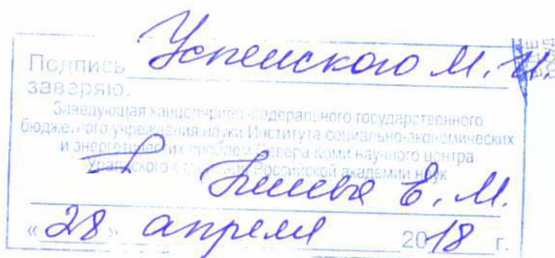 Подпись Успенского М. И.
заверяю.
Заведующая канцелярией Федерального государственного
бюджетного учреждения науки Института социально-экономических
и энергетических проблем Севера Коми научного центра
Уральского отделения Российской академии наук
Е. М.
«28» апреля 2018 г.